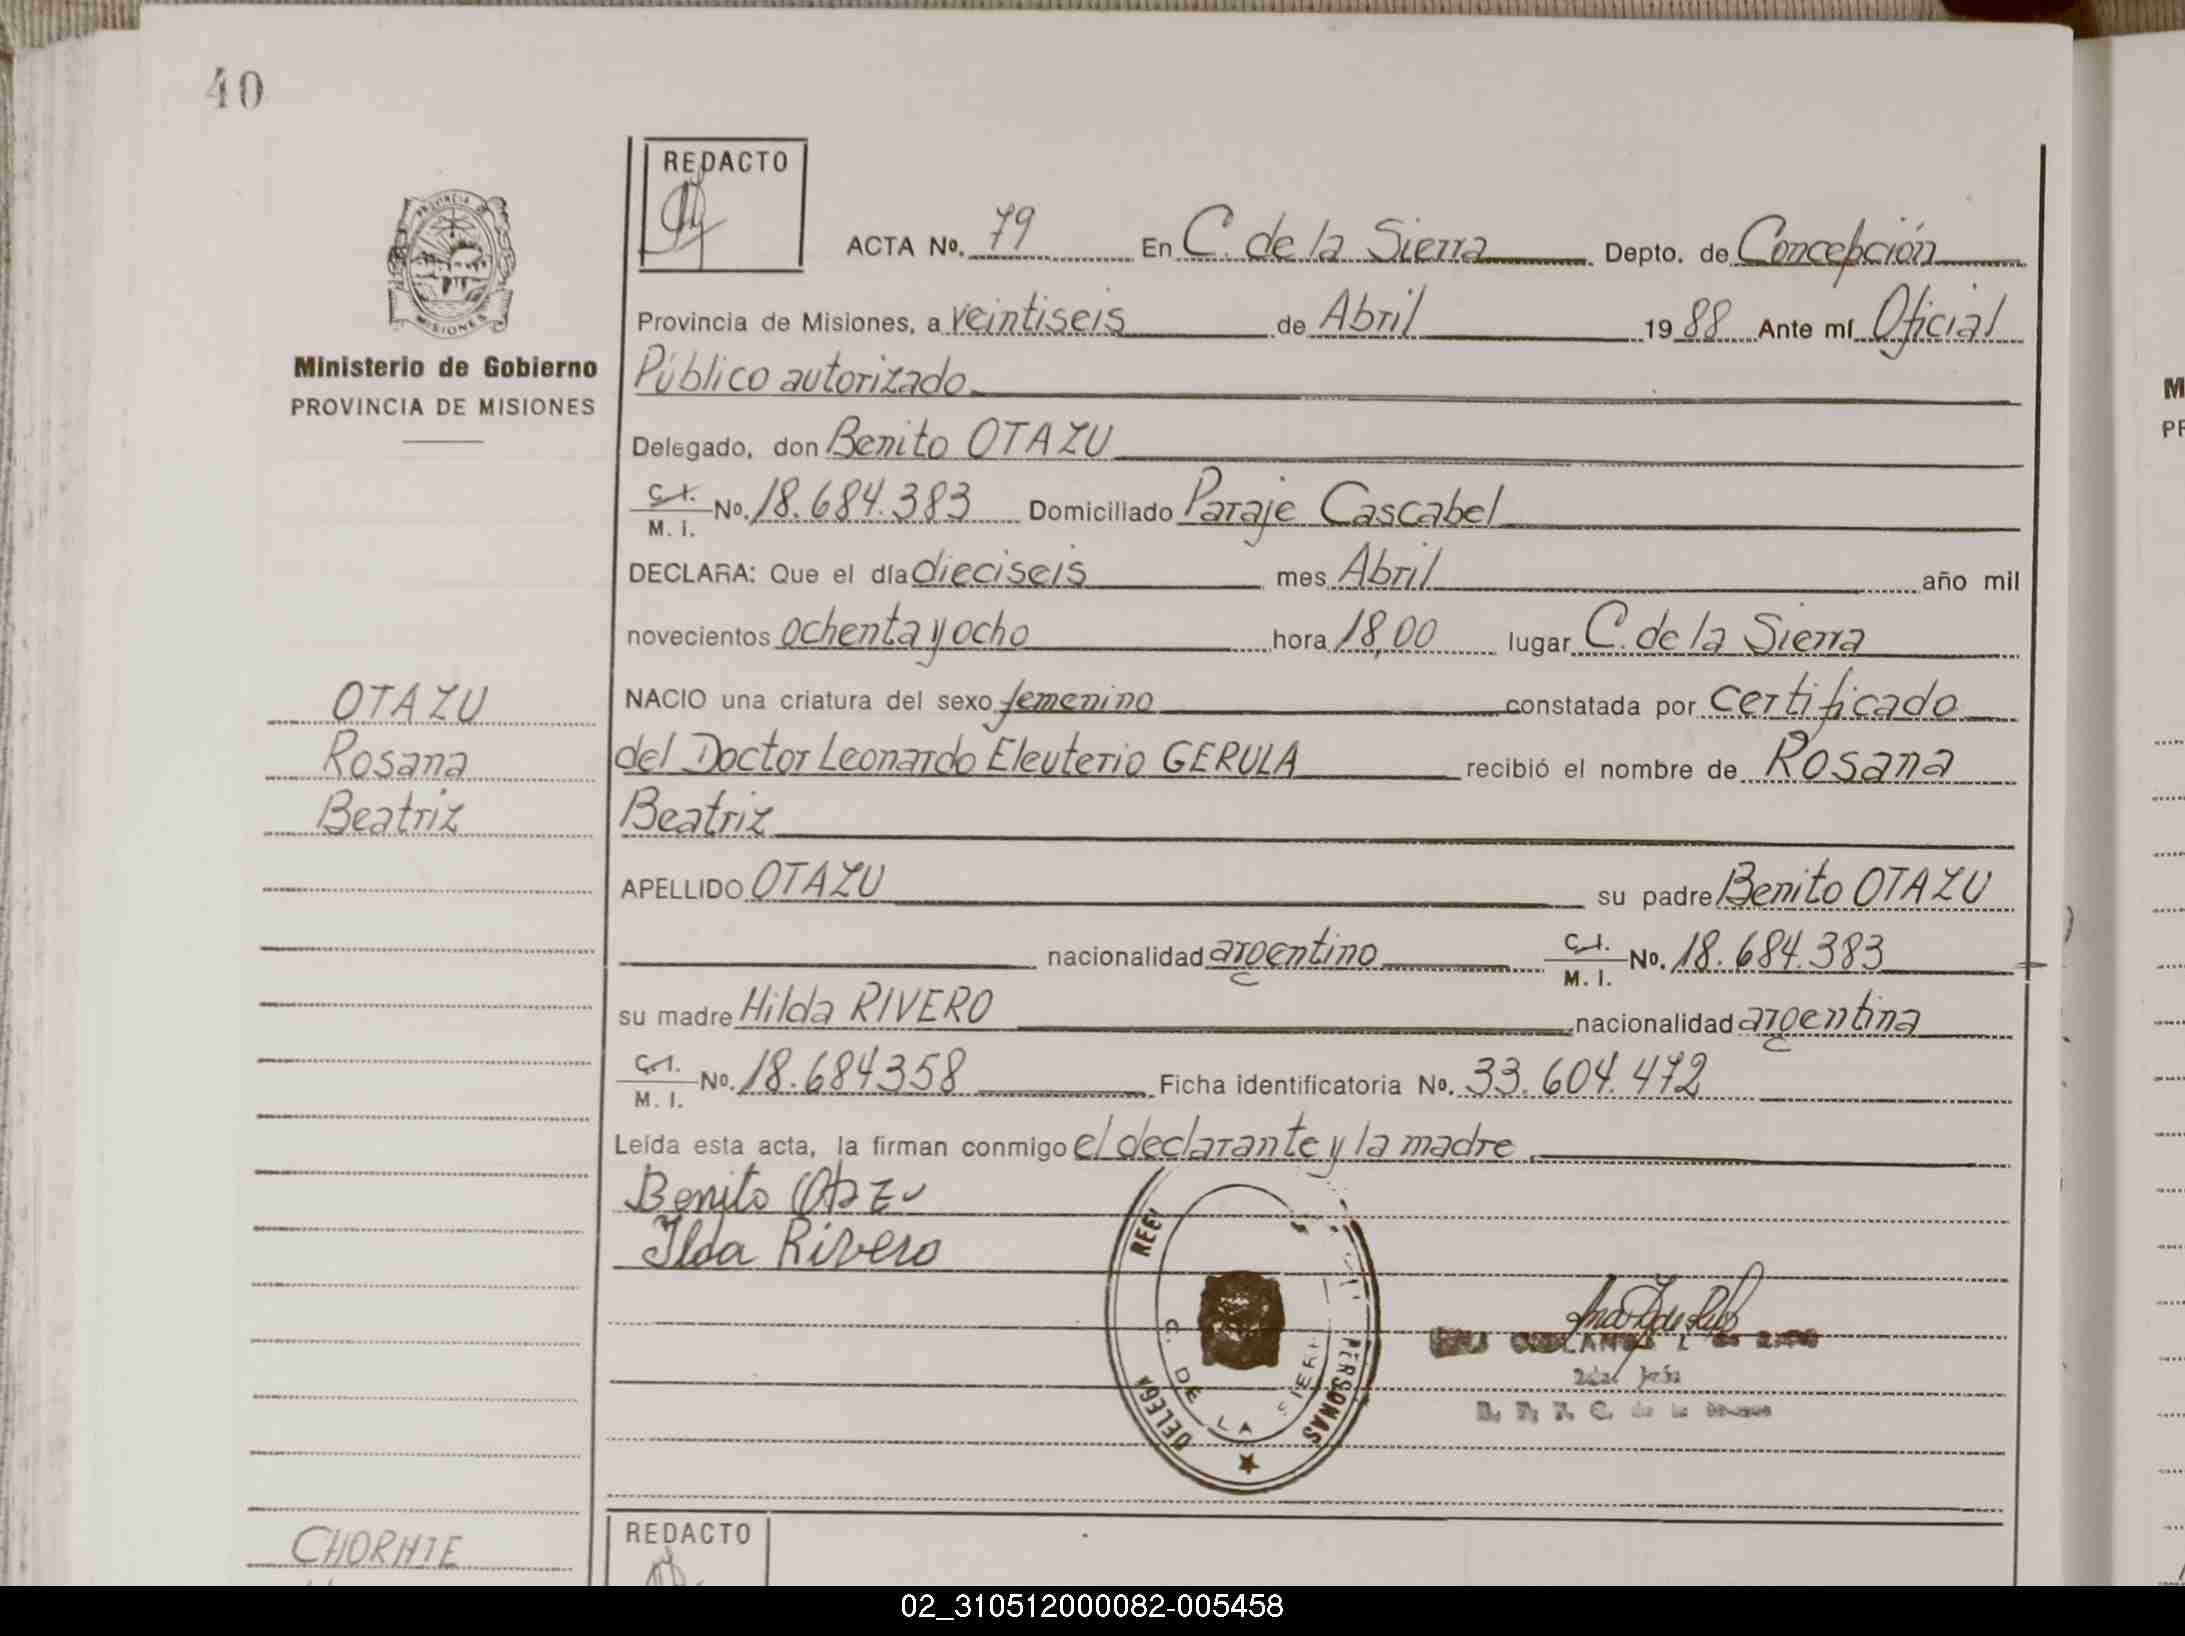 40
REDACTO
ACTA No. 79 En C. de la Sierra Depto. de Concepción
Provincia de Misiones, a veintiseis de Abril 1988 Ante mí Oficial
Público autorizado
Delegado, don Benito OTAZU
C. I. M. I. No. 18.684.383 Domiciliado Paraje Cascabel
DECLARA: Que el día dieciseis mes Abril año mil
novecientos ochenta y ocho hora 18,00 lugar C. de la Sierra
NACIO una criatura del sexo femenino constatada por certificado
del Doctor Leonardo Eleuterio GERULA recibió el nombre de Rosana
Beatriz
APELLIDO OTAZU su padre Benito OTAZU
nacionalidad argentino C. I. M. I. No. 18.684.383
su madre Hilda RIVERO nacionalidad argentina
C. I. M. I. No. 18.684358 Ficha identificatoria No. 33.604.472
Leída esta acta, la firman conmigo el declarante y la madre
Benito Otazu
Ilda Rivero
PROVINCIA DE
MISIONES
Ministerio de Gobierno
PROVINCIA DE MISIONES
OTAZU
Rosana
Beatriz
PERSONAS
DE LA
REDACTO
02_310512000082-005458